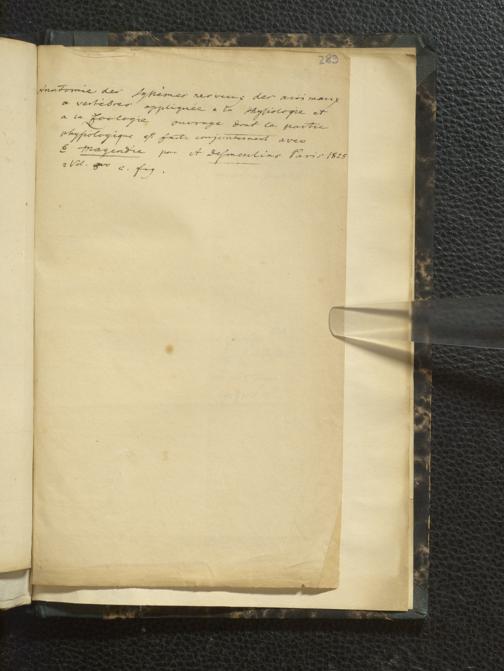 283
Anatomie des systémes nerveux des animaux
a vertébres appliquée a la Physiologie et
a la Zoologie ouvrage dont la partie
physiologique est faite conjointement avec
F Magendie par A Desmoulins Paris 1825
2 Vol. 8vo c. fig.